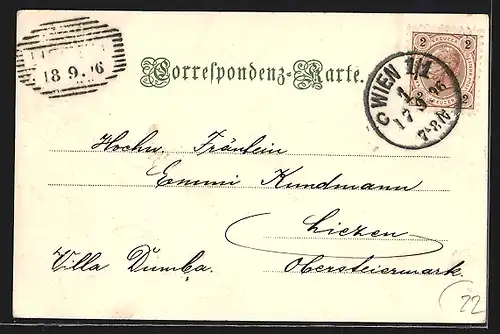 18 9. 96
Correspondenz-Karte.
2 KREUZER 2
2 2
C WIEN 1/1
1
17 9 96
7-8.N
Hochw. Fräulein
Emmi Kundmann
Liezen
Villa Dumba.
Obersteiermark.
22